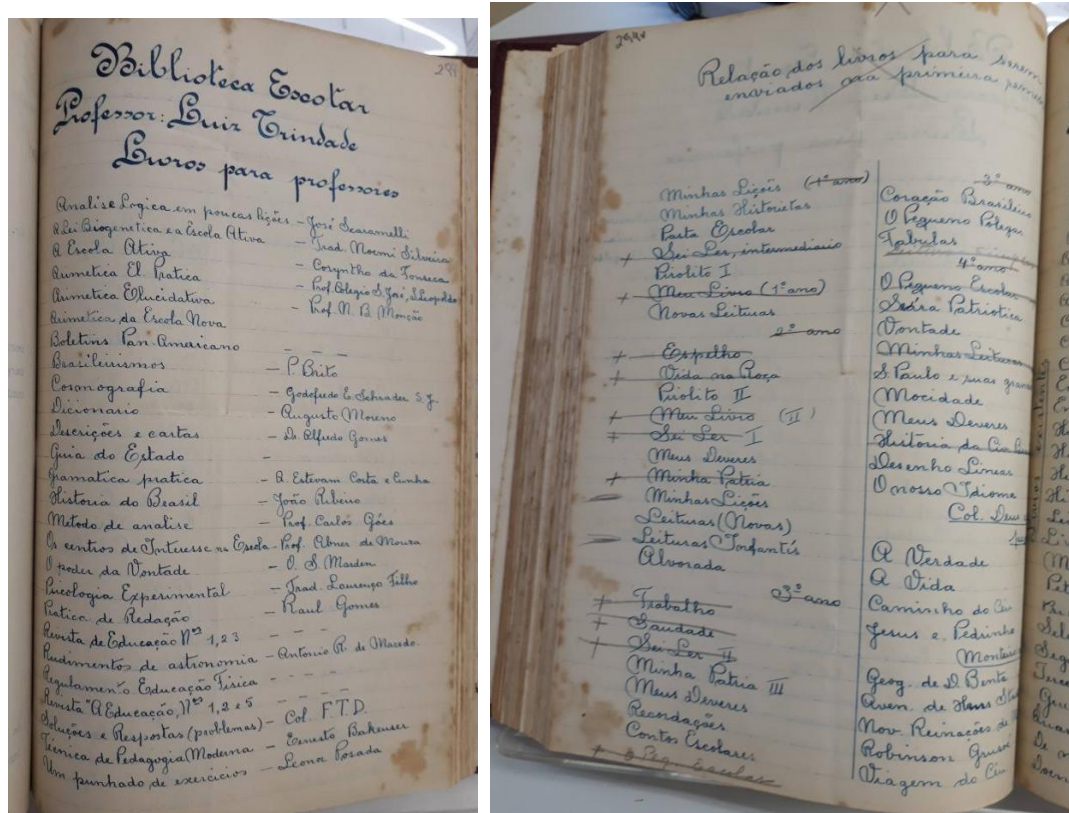 284
Biblioteca Escolar
Professor: Luiz Trindade
Livros para professores
Analise Logica em poucas lições - José Scaramelli
A Lei Biogenetica e a Escola Ativa - Trad. Noemi Silveira
A Escola Ativa - Coryntho da Fonseca
Arimetica El. Pratica - Prof. Colegio S. José, S. Leopoldo
Arimetica Elucidativa - Prof. N. B. Monção
Arimetica da Escola Nova
Boletins Pan-Amaricano - - -
Brasileirismos - P. Brito
Cosmografia - Godofredo E. Schrader S. J.
Dicionario - Augusto Moreno
Descrições e cartas - Dr. Alfredo Gomes
Guia do Estado -
Gramatica pratica - A. Estevam Costa e Cunha
Historia do Brasil - João Ribeiro
Metodo de analise - Prof. Carlos Góes
Os centros de Interesse na Escola - Prof. Abner de Moura
O poder da Vontade - O. S. Marden
Psicologia Experimental - Trad. Lourenço Filho
Pratica de Redação - Raul Gomes
Revista de Educação Nos 1, 2 3 - - -
Rudimentos de astronomia - Antonio R. de Macedo.
Regulamento Educação Fisica - - - -
Revista "A Educação," Nos 1, 2 e 5 - - -
Soluções e Respostas (problemas) - Col. F.T.D.
Tecnica de Pedagogia Moderna - Ernesto Bakeuser
Um punhado de exercicios - Leonor Posada
284v
Relação dos livros para serem
enviados na primeira
Minhas Lições (1º ano)
Minhas Historietas
Pasta Escolar
+ Sei Ler, intermediario
Pirolito I
+ Meu Livro (1º ano)
Novas Leituras
2º ano
+ Espelho
+ Vida na Roça
Pirolito II
+ Meu Livro (II)
+ Sei Ler I
Meus Deveres
+ Minha Patria
- Minhas Lições
Leituras (Novas)
= Leituras Infantís
Alvorada
3º ano
+ Trabalho
+ Saudade
+ Sei Ler II
Minha Patria III
Meus Deveres
Recordações
Contos Escolares
+ O Peq. Escolar
3º ano
Coração Brasileiro
O Pequeno Polegar
Tabulas
4º ano
O Pequeno Escolar
Seára Patriotica
Vontade
Minhas Leituras
S. Paulo e suas
Mocidade
Meus Deveres
Historia da
Desenho Linear
O nosso Idioma
Col. Deus
A Verdade
A Vida
Caminho do Céu
Jesus e Pedrinho
Monteiro
Geog. de D. Benta
Aven. de Hans
Nov. Reinações de
Robinson Crusoé
Viagem do Céu